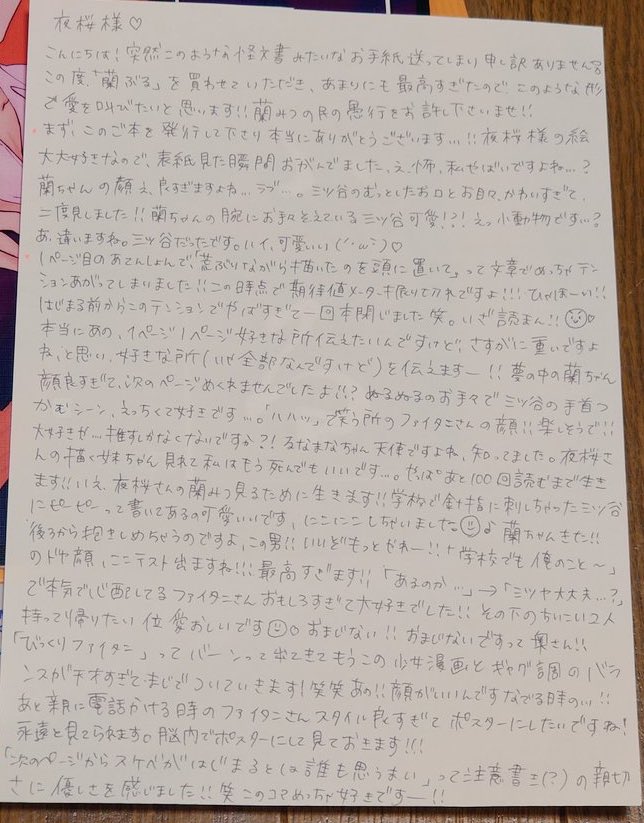 夜桜様♡
こんにちは!突然このような怪文書みたいなお手紙送ってしまい申し訳ありません
この度、「蘭ぶる」を買わせていただき、あまりにも最高すぎたので、このような形
で愛を叫びたいと思います!!蘭みつの民の愚行をお許し下さいませ!!
まず、このご本を発行して下さり本当にありがとうございます…!!夜桜様の絵
大大好きなので、表紙見た瞬間おがんでました、え、怖、私やばいですよね…?
蘭ちゃんの顔え、良すぎますよね…ラブ…。ミツ谷のむっとしたお口とお目々、かわいすぎて、
二度見しました!!蘭ちゃんの腕にお手々そえているミツ谷可愛!?!えっ小動物です…?
あ、違いますね。ミツ谷だったです。ハイ、可愛いい(´・ω・`)♡
1ページ目のあてんしょんで、「荒ぶりながら描いたのを頭に置いて」って文章でめっちゃテン
ションあがってしまいました!!この時点で期待値メーターキ振り切れですよ!!!ひゃほーい!!
はじまる前からこのテンションでやばすぎて一回本閉じました笑。いざ読まん!!
本当にあの、1ページ1ページ好きな所伝えたいんですけど、さすがに重いですよ
ね、と思い、好きな所(いや全部なんですけど)を伝えますー!!夢の中の蘭ちゃん
顔良すぎて、次のページめくれませんでしたよ!!?ぬるぬるのお手々でミツ谷の手首つ
かむシーン、えっちくて好きです…。「ハハッ」で笑う所のファイタニさんの顔!!楽しそうで!!
大好きが…推すしかなくないですか?!るなまなちゃん天使ですよね、知ってました。夜桜さ
んの描く妹ちゃん見れて私はもう死んでもいいです…。やっぱあと100回読むまで生き
ます!!いえ、夜桜さんの蘭みつ見るために生きます!!学校で針指に刺しちゃったミツ谷
にピーピーって書いてあるの可愛いいです、にこにこしちゃいました♪蘭ちゃんきた!!
後ろから抱きしめちゃうのですよ、この男!!いいどもっとやれー!!+学校でも俺のこと〜」
のドヤ顔、ここテスト出ますね!!!最高すぎます!!「あるのか…」→「ミツヤ大丈夫…?」
で本気で心配してるファイタニさんおもしろすぎて大好きでした!!その下のちいこい2人
持って帰りたい位愛おしいです おまじない!!おまじないですって奥さん!!
「びっくりファイタニ」ってバーンって出てきてもうこの少女漫画とギャグ調のバラ
ンスが天才すぎてまじでついていきます!笑笑あの!!顔がいいんですなでる時の…!!
あと親に電話かける時のファイタニさんスタイル良すぎてポスターにしたいですね!
永遠と見てられます。脳内でポスターにして見ておきます!!!
「次のページからスケベがはじまるとは誰も思うまい」って注意書き(?)の親切
さに優しさを感じました!!笑このコマめっちゃ好きですー!!